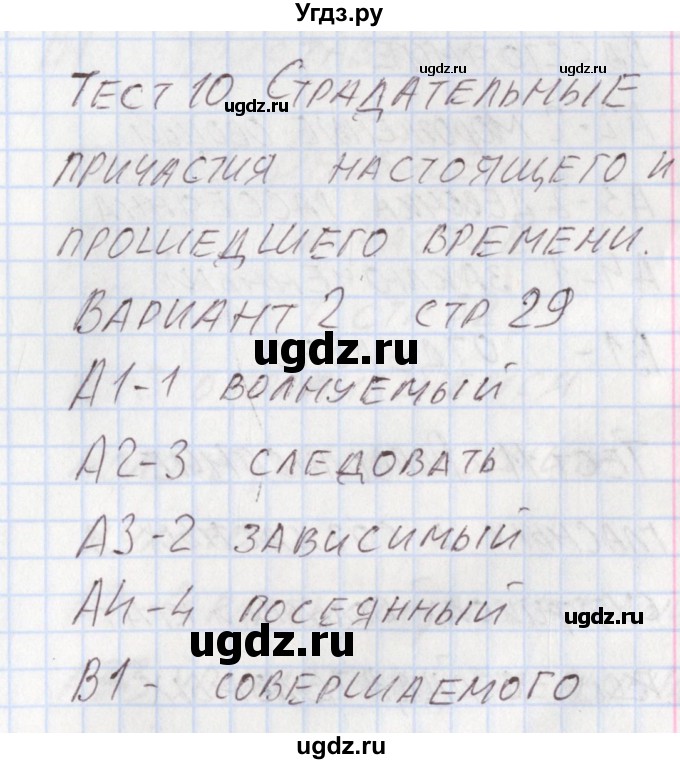 Угдз.ру
ugdz.ru ugdz.ru
Тест 10 Страдательные
ugdz.ru
причастия настоящего и
прошедшего времени.
Вариант 2 стр 29
ugdz.ru
А1-1 волнуемый
А2-3 следовать
А3-2 зависимый
А4-4 посеянный
ugdz.ru
ugdz.ru
В1- совершаемого
ugdz.ru